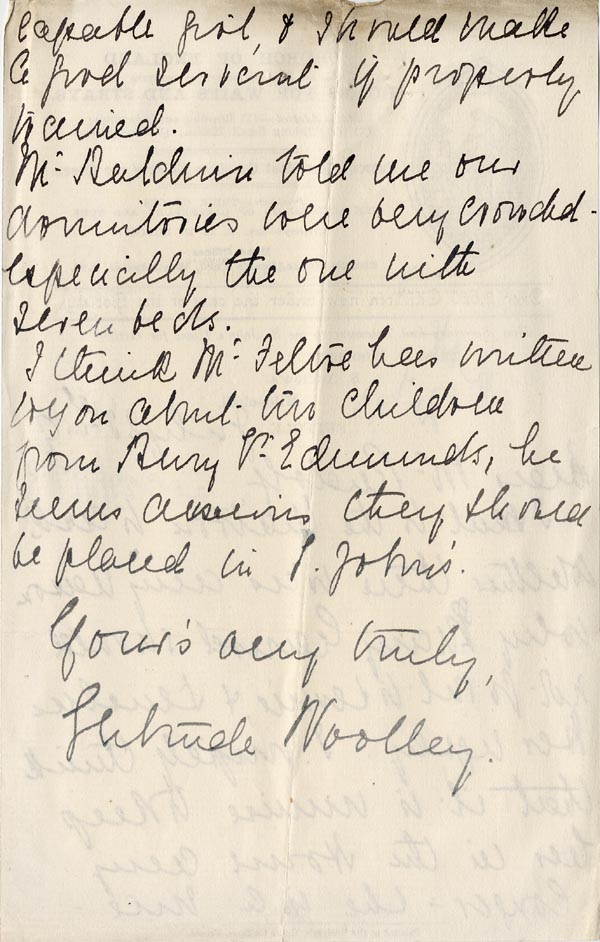 capable girl, & should make
a good servant if properly
trained.
Mr. Baldwin told me our
dormitories were very crowded -
especially the one with
seven beds.
I think Mr. Feltoe has written
to you about two children
from Bury St. Edmunds, he
seems anxious they should
be placed in S. John's.
Your's very truly,
Gertrude Woolley.